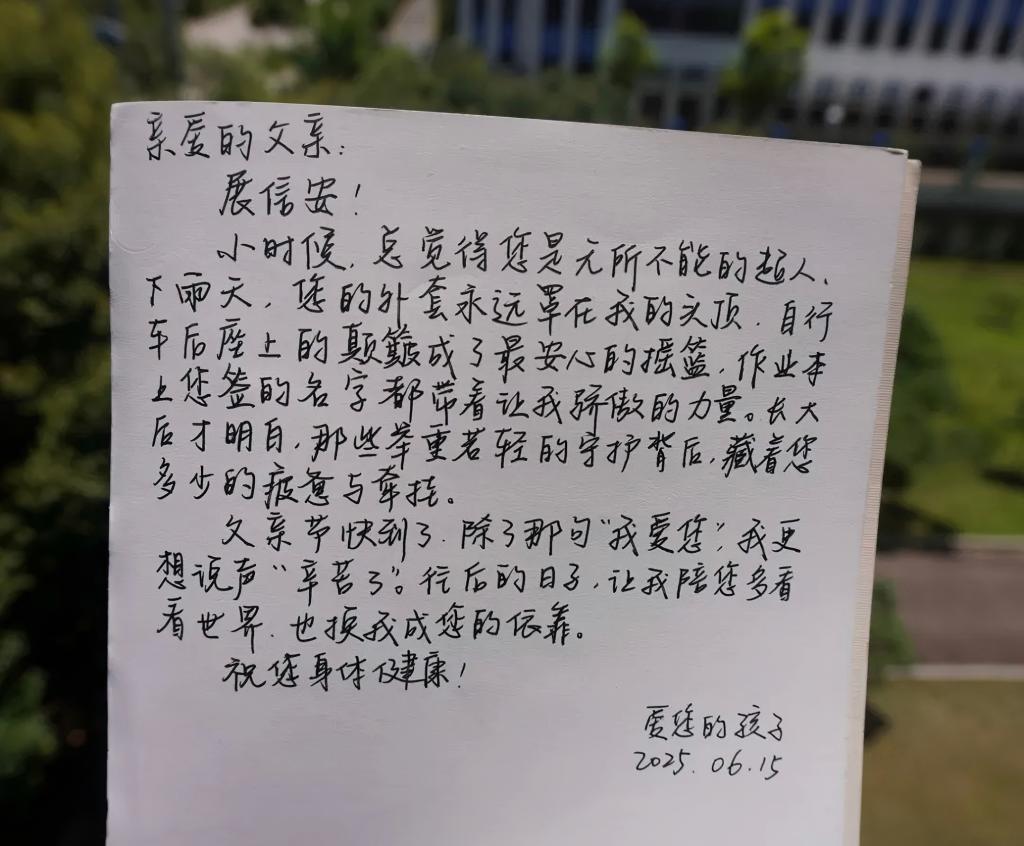 亲爱的父亲：
展信安！
小时候，总觉得您是无所不能的超人，
下雨天，您的外套永远罩在我的头顶，自行
车后座上的颠簸成了最安心的摇篮，作业本
上您签的名字都带着让我骄傲的力量。长大
后才明白，那些举重若轻的守护背后，藏着您
多少的疲惫与牵挂。
父亲节快到了，除了那句“我爱您”，我更
想说声“辛苦了”。往后的日子，让我陪您多看
看世界，也换我成您的依靠。
祝您身体健康！
爱您的孩子
2025.06.15